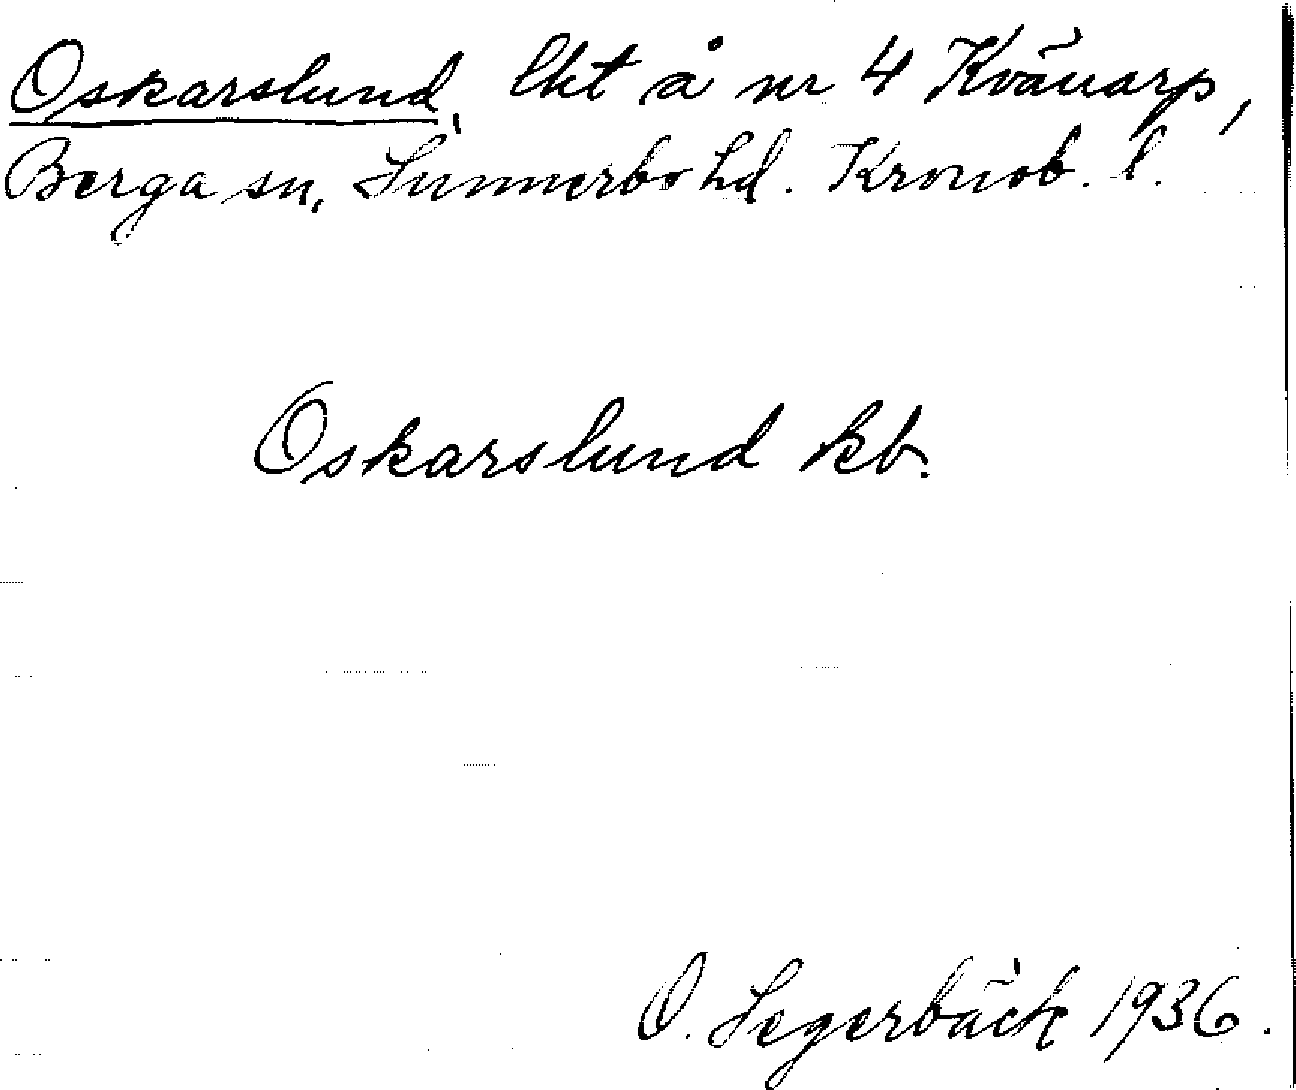 Oskarslund, lht å nr 4 Kvänarp,
Berga sn, Sunnerbo hd. Kronob. l.
Oskarslund kb.
O. Segerbäck 1936.